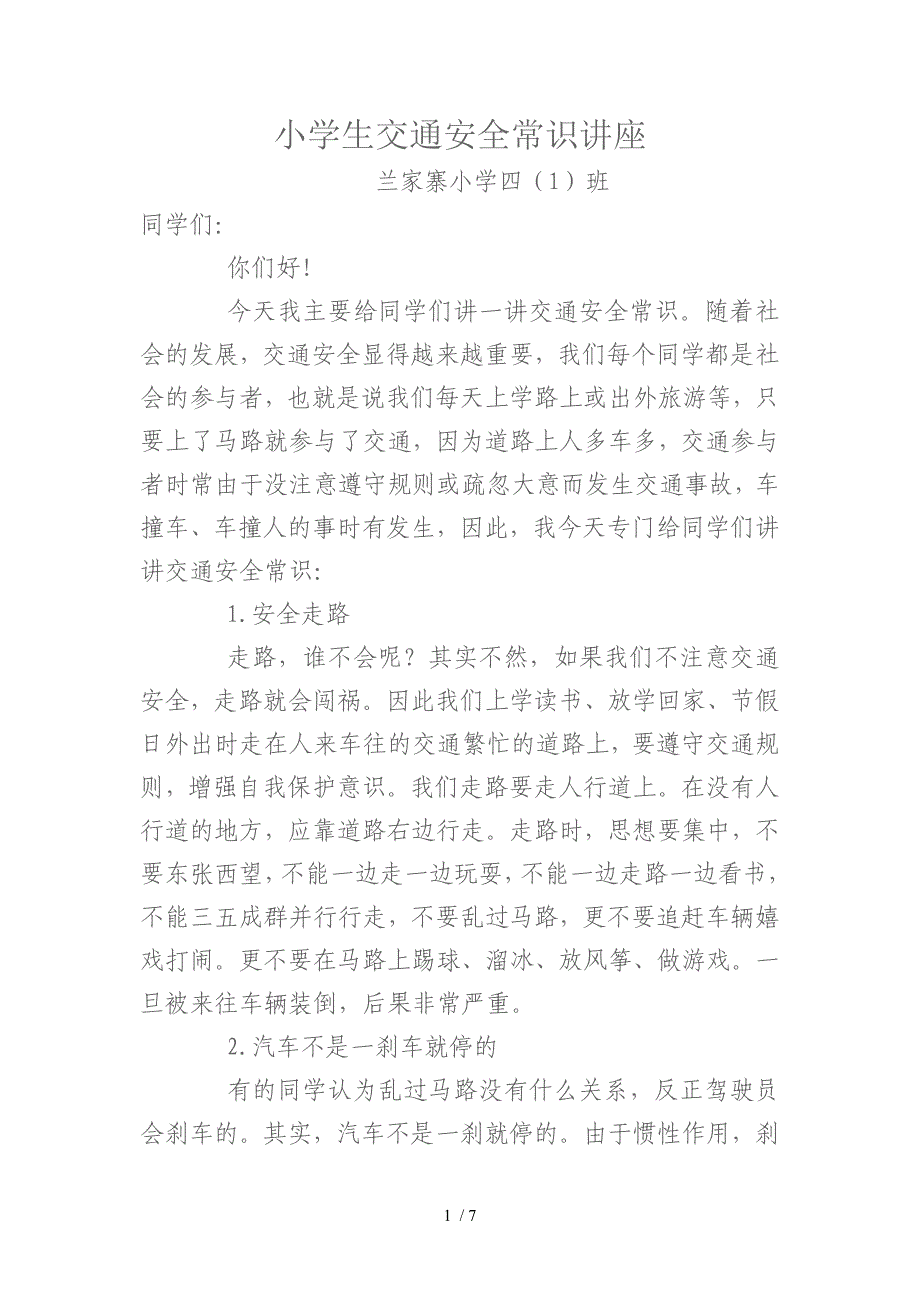 小学生交通安全常识讲座
兰家寨小学四（1）班
同学们：
你们好！
今天我主要给同学们讲一讲交通安全常识。随着社
会的发展，交通安全显得越来越重要，我们每个同学都是社
会的参与者，也就是说我们每天上学路上或出外旅游等，只
要上了马路就参与了交通，因为道路上人多车多，交通参与
者时常由于没注意遵守规则或疏忽大意而发生交通事故，车
撞车、车撞人的事时有发生，因此，我今天专门给同学们讲
讲交通安全常识：
1.安全走路
走路，谁不会呢？其实不然，如果我们不注意交通
安全，走路就会闯祸。因此我们上学读书、放学回家、节假
日外出时走在人来车往的交通繁忙的道路上，要遵守交通规
则，增强自我保护意识。我们走路要走人行道上。在没有人
行道的地方，应靠道路右边行走。走路时，思想要集中，不
要东张西望，不能一边走一边玩耍，不能一边走路一边看书，
不能三五成群并行行走，不要乱过马路，更不要追赶车辆嬉
戏打闹。更不要在马路上踢球、溜冰、放风筝、做游戏。一
旦被来往车辆装倒，后果非常严重。
2.汽车不是一刹车就停的
有的同学认为乱过马路没有什么关系，反正驾驶员
会刹车的。其实，汽车不是一刹就停的。由于惯性作用，刹
1 / 7